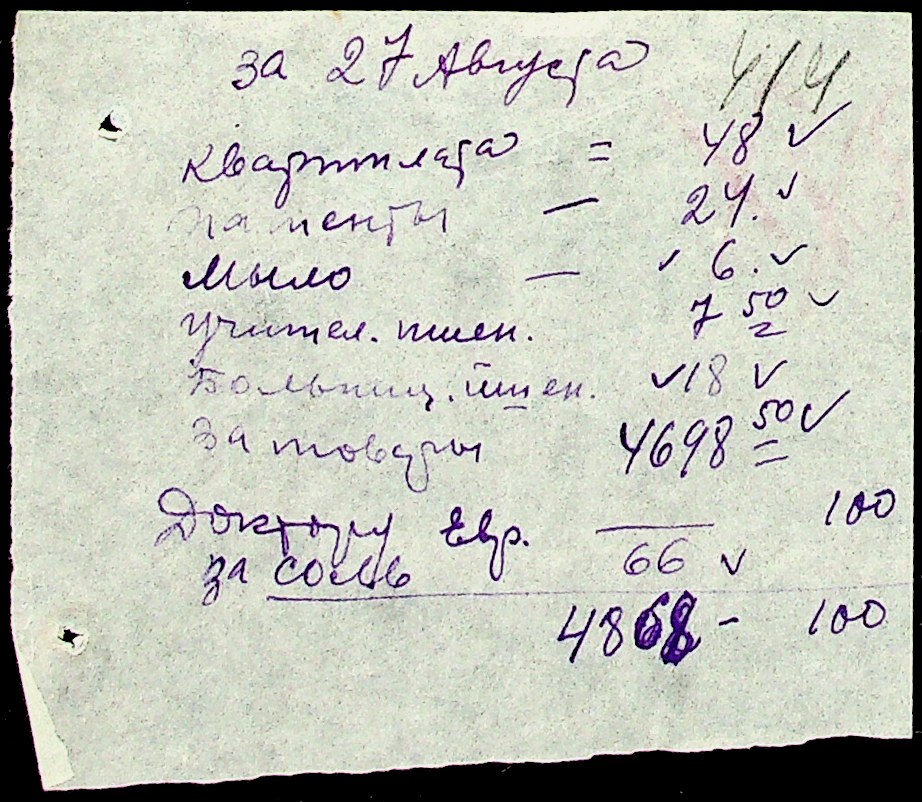 за 27 Августа 4/4
квартплата = 48 ✓
патенты — 24. ✓
мыло — ✓ 6. ✓
учител. пшен. 7 50 ✓
Больниц. пшен. ✓ 18 ✓
за товары 4698 50 ✓
Доктору Евр. — 100
за соль 66 ✓
4868 - 100